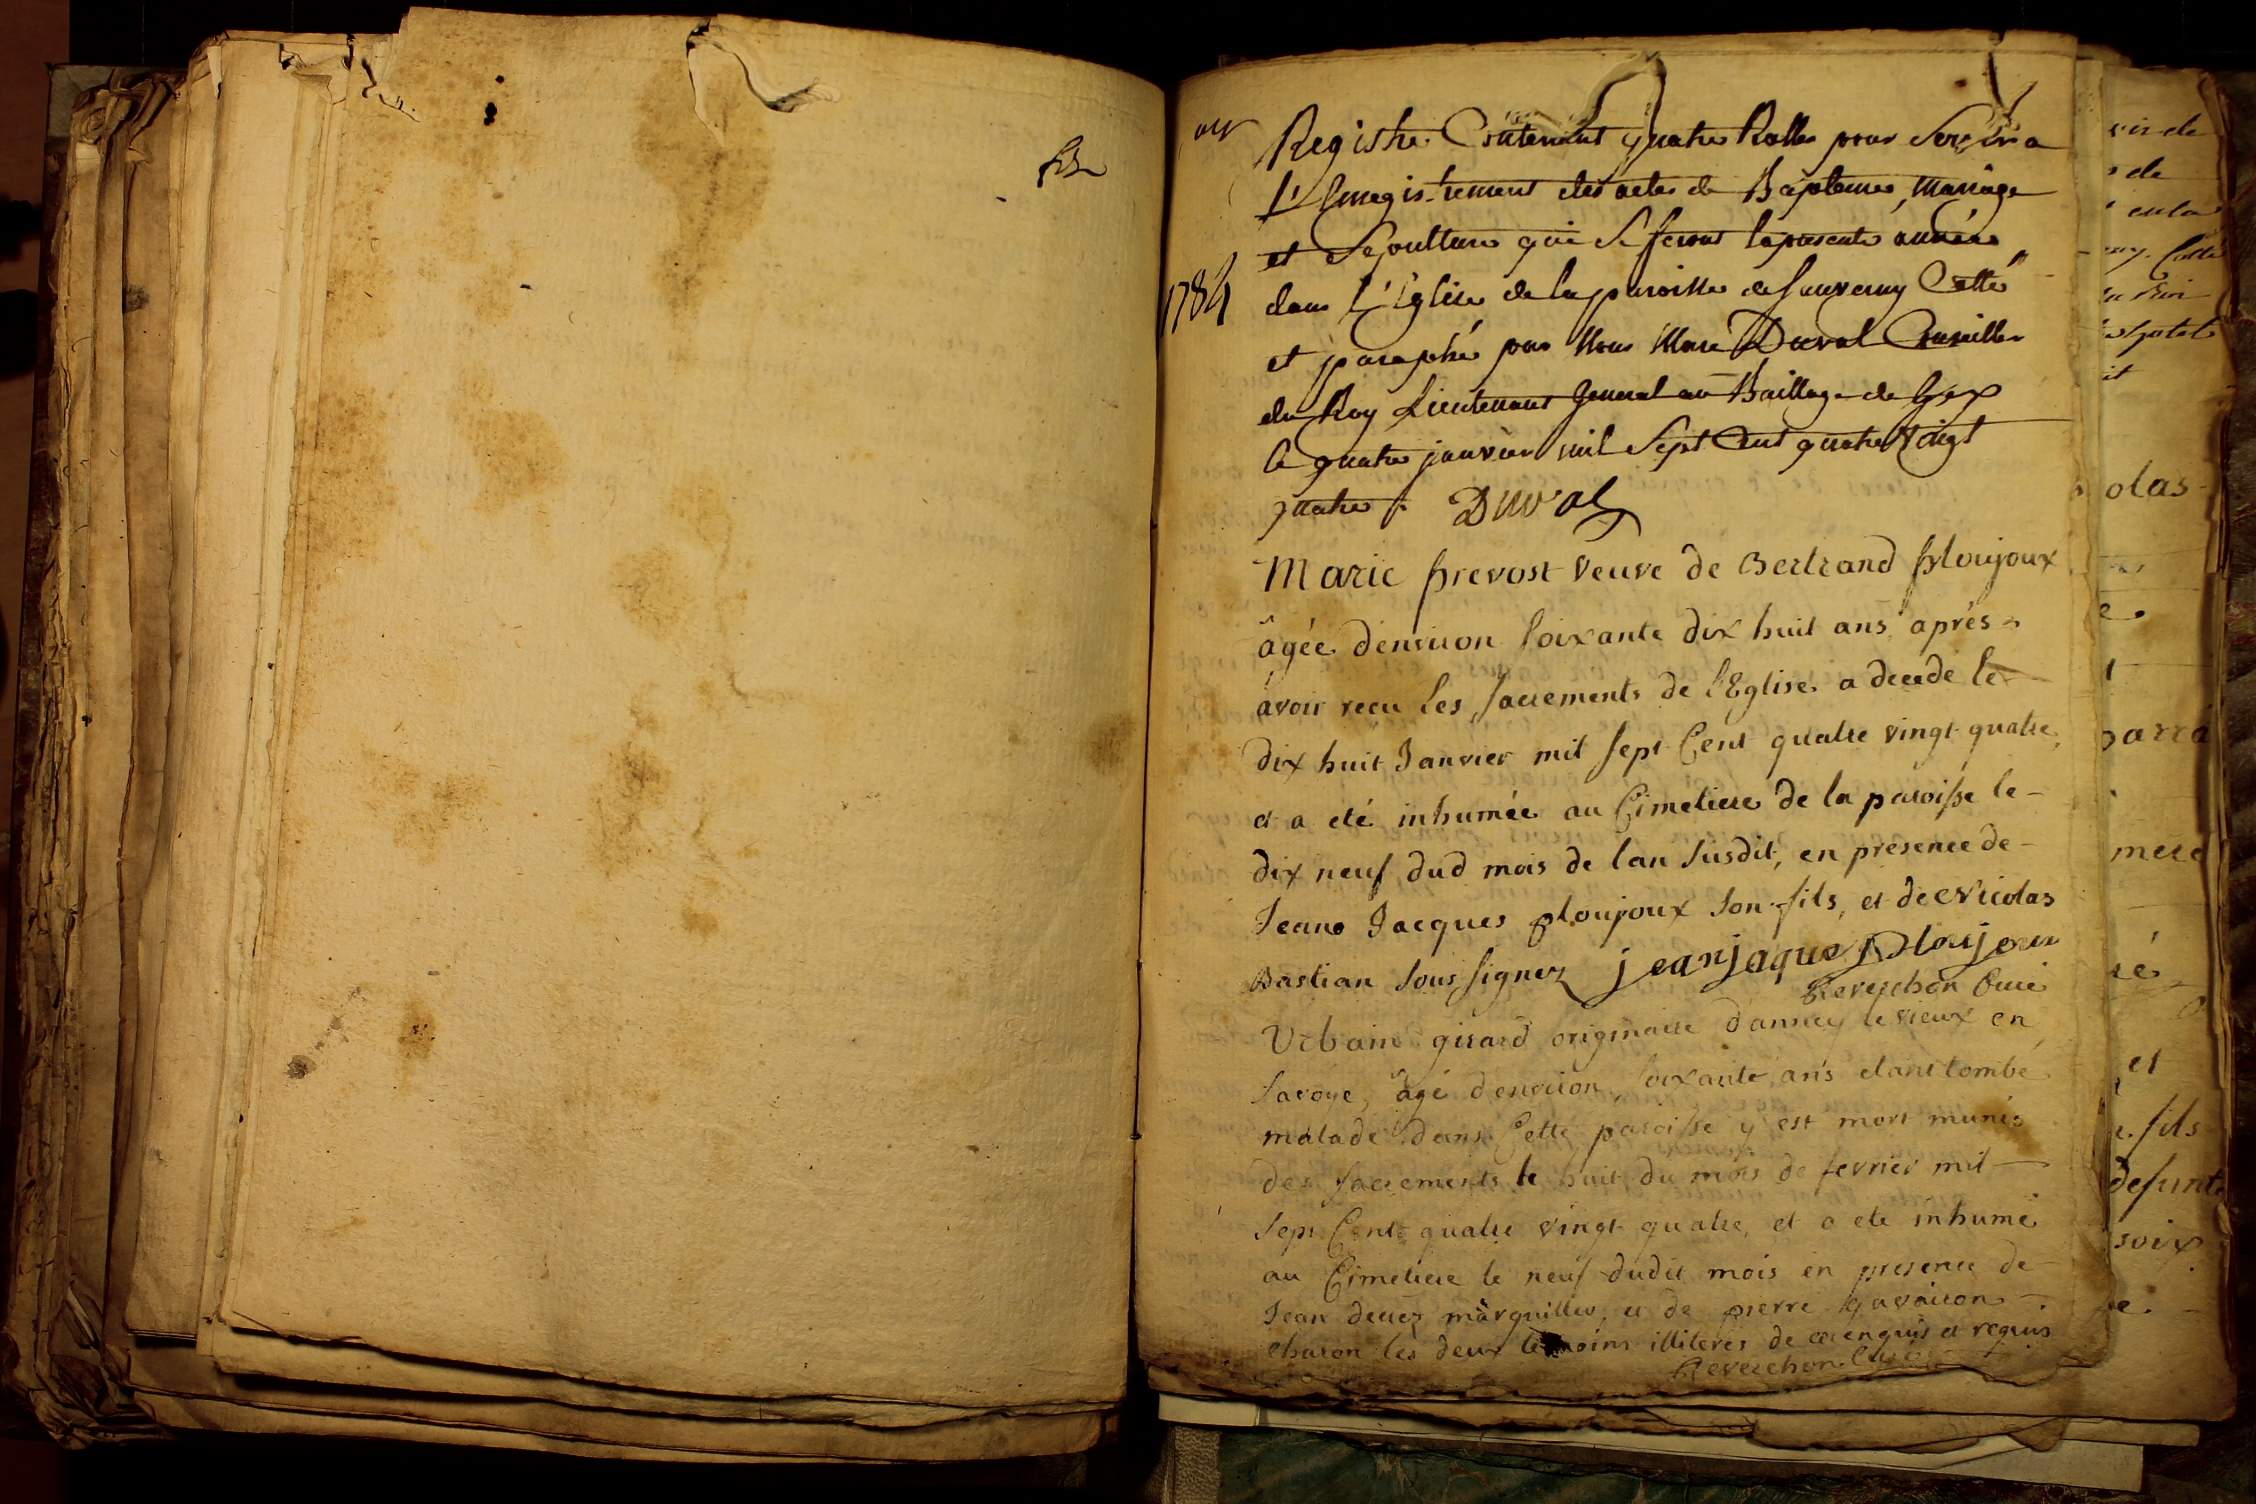 Registre Contenant quatre Rolles pour Servir a
L'Enregistrement des actes de Baptemes, Mariage
et Sepulture qui Se feront la presente année
1784
dans L'Eglise de la paroisse de Sauverny Cotté
et paraphé par Nous Marc Duval Conseiller
du Roy Lieutenant General au Baillage de Gex
le quatre janvier mil Sept Cent quatre Vingt
quatre . Duval
Marie prevost veuve de Bertrand ploujoux
âgée denviron soixante dix huit ans après
avoir recu les sacrements de l'Eglise a decedé le
dix huit Janvier mil sept Cent quatre vingt quatre,
et a eté inhumée au Cimetiere de la paroisse le -
dix neuf dud mois de lan susdit, en présence de -
Jean Jacques ploujoux son fils, et de Nicolas
Bastian sous signez jeanjaque Ploujoux
Reverchon Curé
Urbain girard originaire dannecy le vieux en
savoye, âgé denviron soixante ans etant tombé
malade dans Cette paroisse y est mort munis
des sacrements le huit du mois de fevrier mil
sept Cent quatre vingt quatre, et a ete inhumé
au Cimetiere le neuf dudit mois en presence de
Jean marguillier, et de pierre
charon les deux temoins illiteres de ce enquis et requis
Reverchon Curé
olas
mere
et
fils
defunte